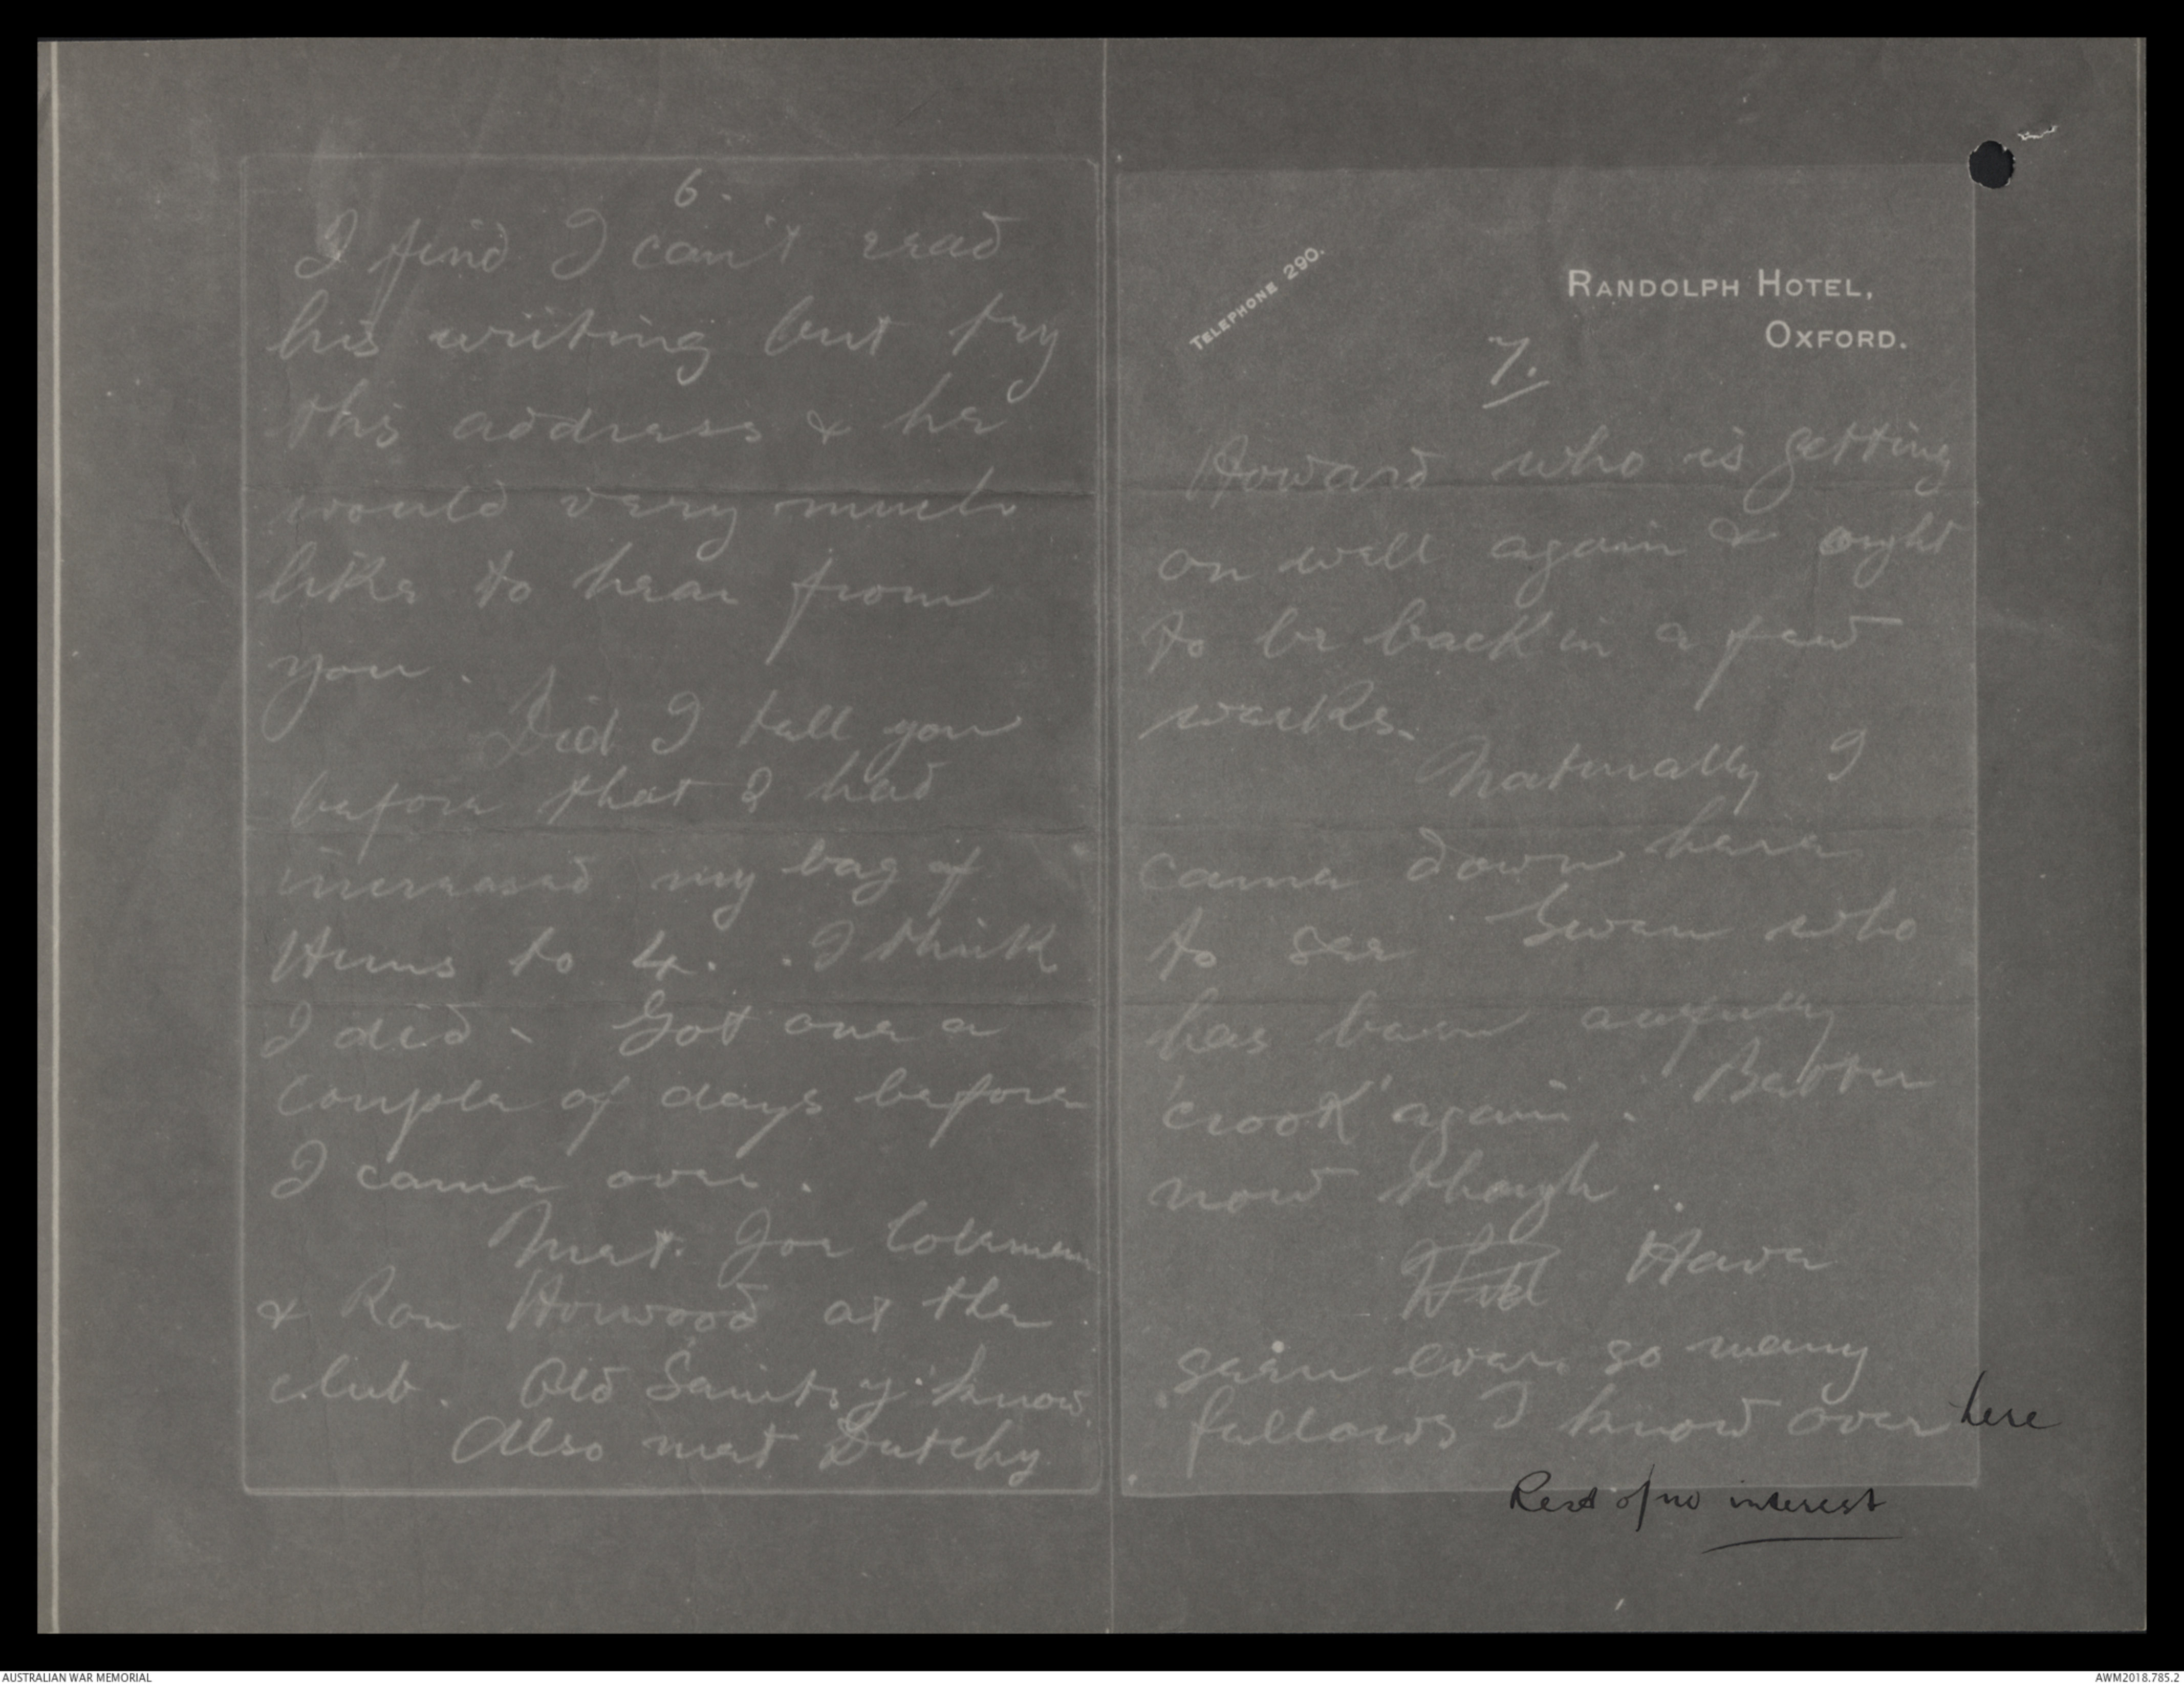 6.
I find I can't read
his writing but try
this address & he
would very much
like to hear from
you.
Did I tell you
before that I had
increased my bag of
Huns to 4. I think
I did. Got one a
couple of days before
I came over.
Met Joe Coleman
& Ron Horwood at the
club. Old Saints, y'know.
Also met Dutchy
TELEPHONE 290.
RANDOLPH HOTEL,
OXFORD.
7.
Howard who is getting
on well again & ought
to be back in a few
weeks.
Naturally I
came down here
to see Swan who
has been awfully
'crook' again. Better
now though.
Have
seen ever so many
fellows I know over here
Rest of no interest
AUSTRALIAN WAR MEMORIAL
AWM2018.785.2